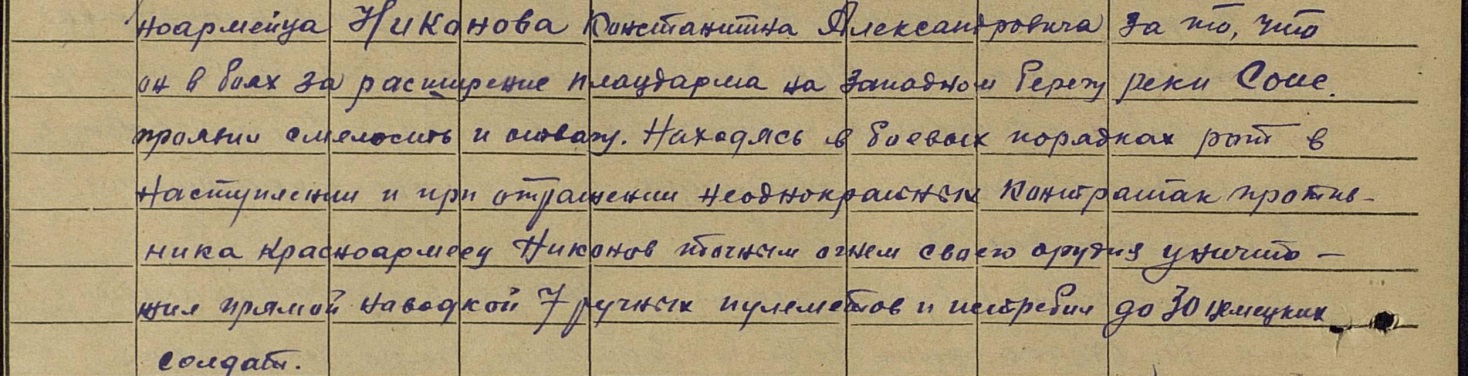 ноармейца Никанова Константина Александровича за то, что
он в боях за расширение плацдарма на западном берегу реки Сож.
проявил смелость и отвагу. Находясь в боевых порядках рот в
наступлении и при отражении неоднократных контратак против-
ника красноармеец Никанов точным огнем своего орудия уничто-
жил прямой наводкой 7 ручных пулеметов и истребил до 30 немецких
солдат.